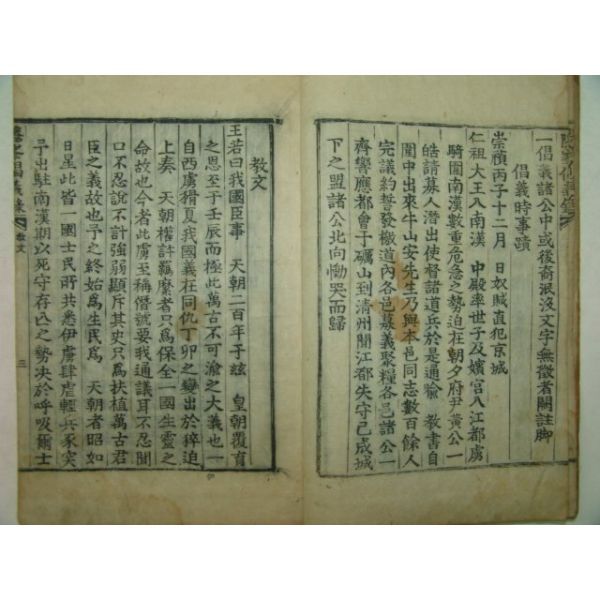 一倡義諸公中或後裔泯沒文字無徵者闕註脚
倡義時事蹟
崇禎丙子十二月 日奴賊直犯京城
仁祖大王入南漢 中殿率世子及嬪宮入江都虜
騎圍南漢數重危急之勢迫在朝夕府尹黃公一
皓請募人潛出使督諸道兵於是通喩 敎書自
圍中出來牛山安先生乃與本邑同志數百餘人
完議約誓發檄道內各邑募義聚糧各邑諸公一
齊響應都會于礪山到清州聞江都失守已成城
下之盟諸公北向慟哭而歸
敎文
王若曰我國臣事 天朝二百年于玆 皇朝覆育
之恩至于壬辰而極此萬古不可渝之大義也一
自西虜猾夏我國義在同仇丁卯之變出於猝迫
上奏 天朝權許羈縻者只爲保全一國生靈之
命故也今者此虜至稱僭號要我通議耳不忍聞
口不忍說不計強弱顯斥其使只爲扶植萬古君
臣之義故也予之終始爲生民爲 天朝者昭如
日星此皆一國士民所共悉伊虜肆虐輕兵豕突
予出駐南漢期以死守存亡之勢決於呼吸爾士
敎文
三